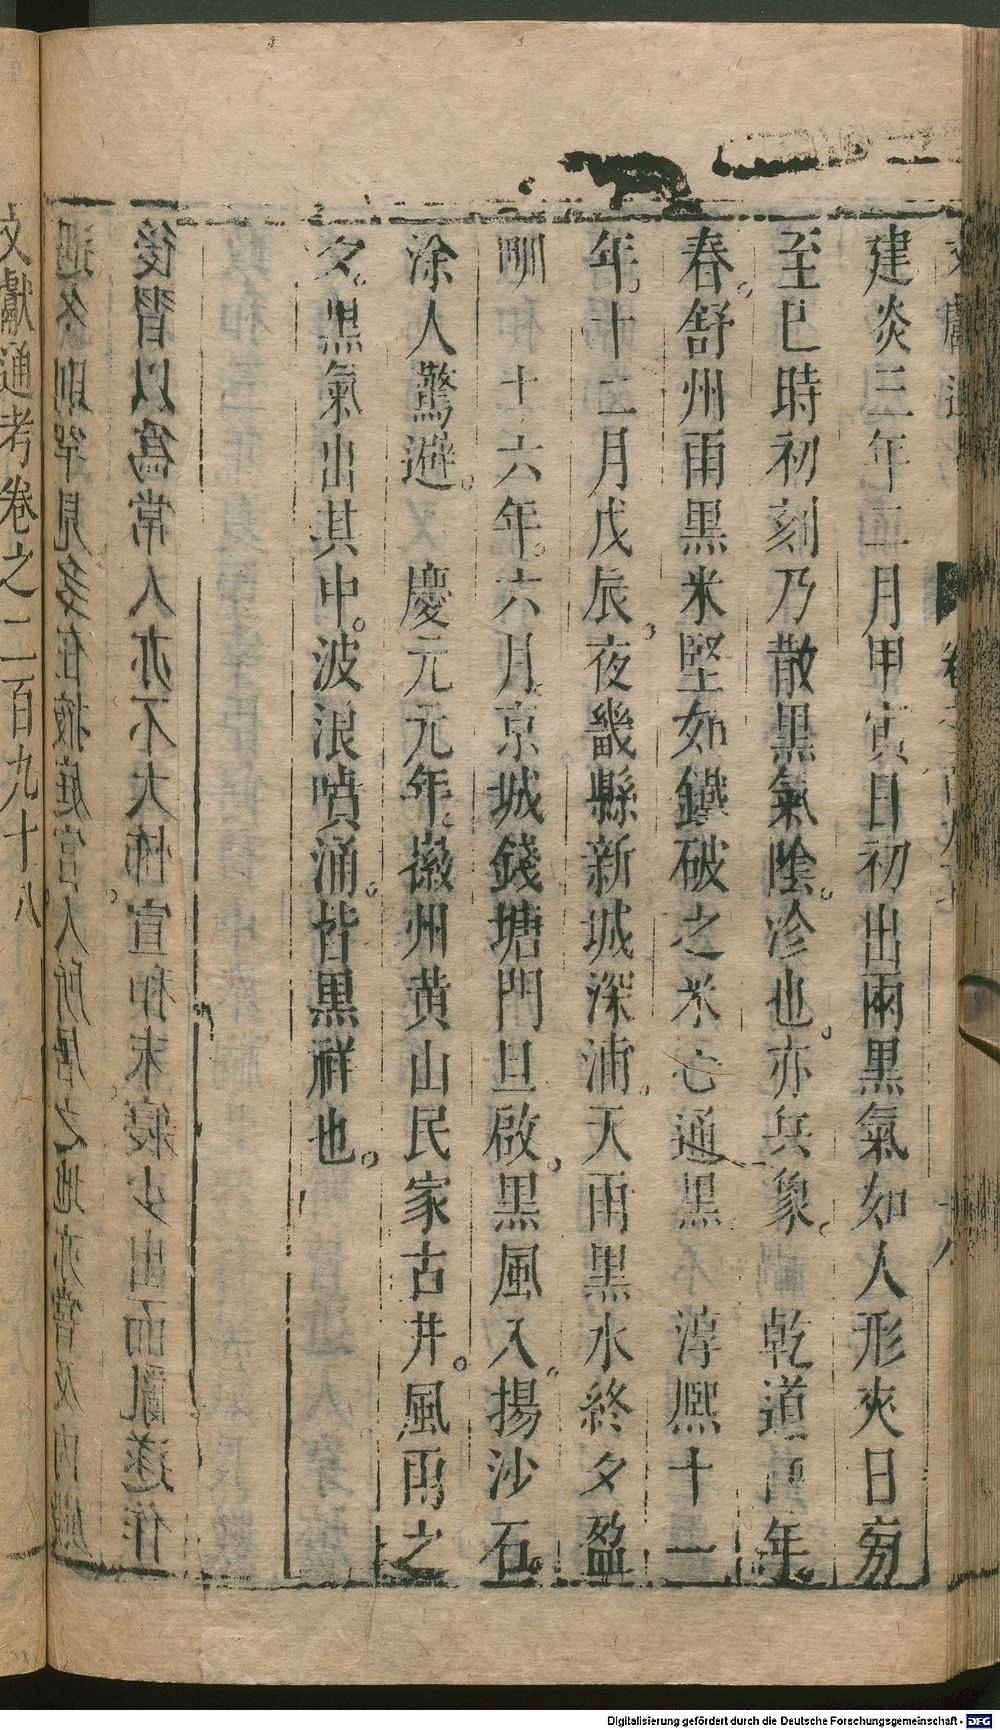 建炎三年二月甲寅日初出兩黑氣如人形夾日旁
至巳時初刻乃散黑氣陰沴也亦兵象 乾道年
春舒州雨黑米堅如鐵破之米心通黑 淳熙十一
年十二月戊辰夜畿縣新城深浦天雨黑水終夕盈
畎 十六年六月京城錢塘門旦啟黑風入揚沙石
涂人驚避 慶元元年徽州黄山民家古井風雨之
夕黑氣出其中波浪噴涌皆黑祥也
後習以爲常人亦不大怖宣和末寖少出而亂遂作
文獻通考卷之二百九十八
Digitalisierung gefördert durch die Deutsche Forschungsgemeinschaft - DFG